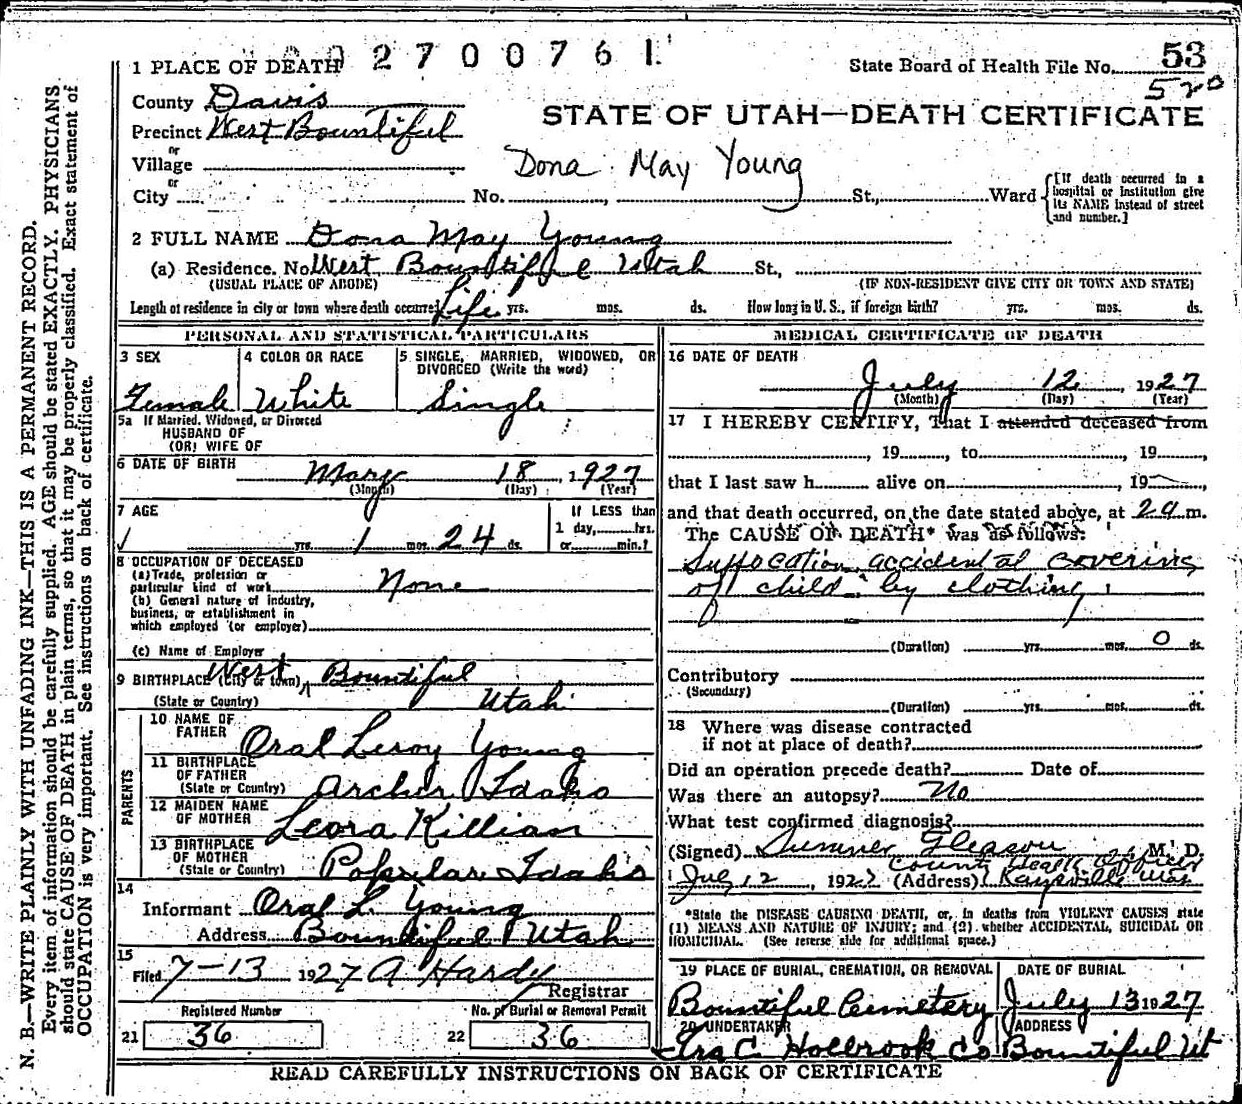 2700761
1 PLACE OF DEATH
State Board of Health File No. 53
520
County Davis
STATE OF UTAH—DEATH CERTIFICATE
Precinct West Bountiful
or
Village
Dona May Young
or
City No. , St., Ward
[If death occurred in a hospital or institution give its NAME instead of street and number.]
2 FULL NAME Dona May Young
(a) Residence. No. West Bountiful Utah St.,
(USUAL PLACE OF ABODE) (IF NON-RESIDENT GIVE CITY OR TOWN AND STATE)
Length of residence in city or town where death occurred Life yrs. mos. ds. How long in U. S., if foreign birth? yrs. mos. ds.
PERSONAL AND STATISTICAL PARTICULARS
3 SEX
Female
4 COLOR OR RACE
White
5 SINGLE, MARRIED, WIDOWED, OR
DIVORCED (Write the word)
Single
5a If Married, Widowed, or Divorced
HUSBAND OF
(OR) WIFE OF
6 DATE OF BIRTH May 18, 1927
(Month) (Day) (Year)
7 AGE
yrs. 1 mos. 24 ds.
If LESS than
1 day, hrs.
or min.?
8 OCCUPATION OF DECEASED
(a) Trade, profession or
particular kind of work None
(b) General nature of industry,
business, or establishment in
which employed (or employer)
(c) Name of Employer
9 BIRTHPLACE (City or town) West Bountiful
(State or Country) Utah
PARENTS
10 NAME OF
FATHER Oral Leroy Young
11 BIRTHPLACE
OF FATHER
(State or Country) Archer Idaho
12 MAIDEN NAME
OF MOTHER Leora Killian
13 BIRTHPLACE
OF MOTHER
(State or Country) Idaho
14
Informant Oral L. Young
Address Bountiful Utah
15
Filed 7-13 1927 A Hardy
Registrar
Registered Number No. of Burial or Removal Permit
21 36 22 36
MEDICAL CERTIFICATE OF DEATH
16 DATE OF DEATH
July 12, 1927
(Month) (Day) (Year)
17 I HEREBY CERTIFY, That I attended deceased from
, 19 , to , 19 ,
that I last saw h alive on , 19
and that death occurred, on the date stated above, at 2 a m.
The CAUSE OF DEATH* was as follows:
Suffocation, accidental covering
of child by clothing
(Duration) yrs. mos. 0 ds.
Contributory
(Secondary)
(Duration) yrs. mos. ds.
18 Where was disease contracted
if not at place of death?
Did an operation precede death? Date of
Was there an autopsy? No
What test confirmed diagnosis?
(Signed) Sumner Gleason M. D.
County Health Officer
July 12, 1927 (Address) Kaysville Utah
*State the DISEASE CAUSING DEATH, or, in deaths from VIOLENT CAUSES state
(1) MEANS AND NATURE OF INJURY; and (2) whether ACCIDENTAL, SUICIDAL OR
HOMICIDAL. (See reverse side for additional space.)
19 PLACE OF BURIAL, CREMATION, OR REMOVAL
Bountiful Cemetery
DATE OF BURIAL
July 13 1927
20 UNDERTAKER
Ira C. Holbrook Co
ADDRESS
Bountiful Ut
READ CAREFULLY INSTRUCTIONS ON BACK OF CERTIFICATE
N. B.—WRITE PLAINLY WITH UNFADING INK—THIS IS A PERMANENT RECORD.
Every item of information should be carefully supplied. AGE should be stated EXACTLY. PHYSICIANS
should state CAUSE OF DEATH in plain terms, so that it may be properly classified. Exact statement of
OCCUPATION is very important. See instructions on back of certificate.